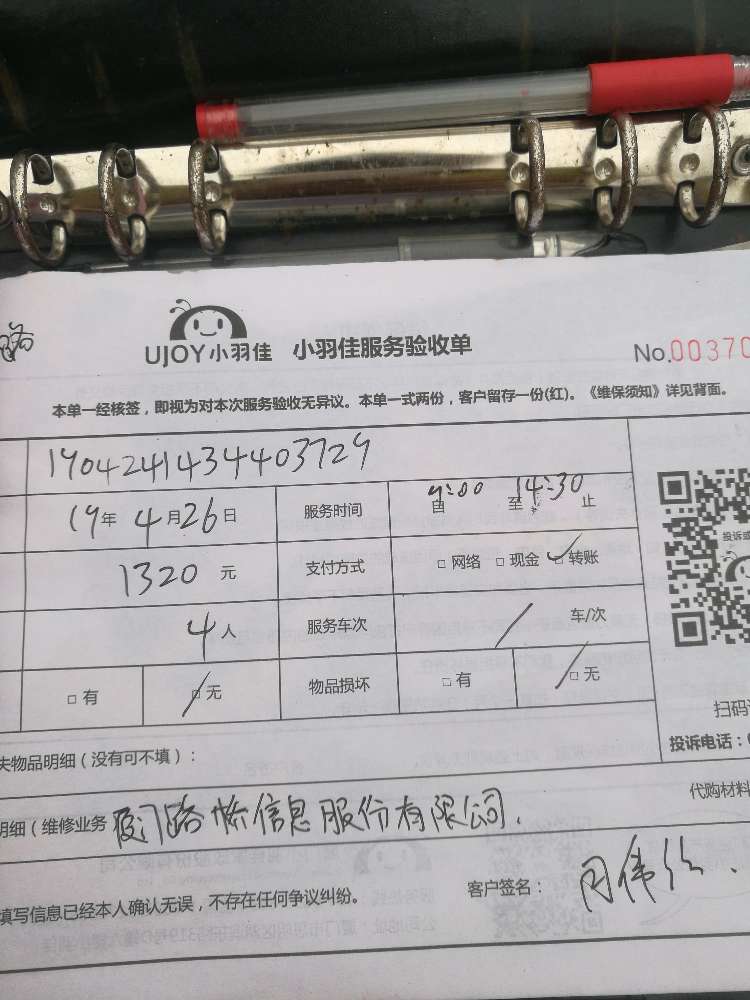 路
UJOY小羽佳 小羽佳服务验收单 No.00370
本单一经核签，即视为对本次服务验收无异议。本单一式两份，客户留存一份(红)。《维保须知》详见背面。
1904241434403729
19年 4月26日 服务时间 自9:00 至14:30止
1320 元 支付方式 □网络 □现金 □转账
4人 服务车次 / 车/次
□有 □无 物品损坏 □有 □无
失物品明细（没有可不填）：
明细（维修业务 厦门路桥信息股份有限公司.
填写信息已经本人确认无误，不存在任何争议纠纷。
客户签名：
投诉或
扫码
投诉电话：
代购材料